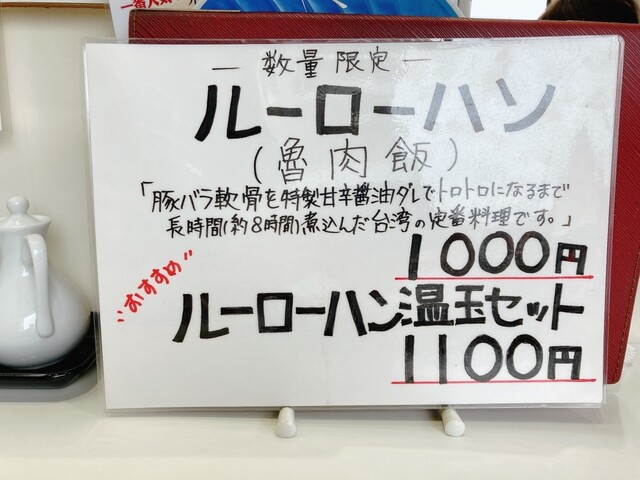 一番人気
― 数量限定 ―
ルーローハン
(魯肉飯)
「豚バラ軟骨を特製甘辛醤油ダレでトロトロになるまで
長時間(約8時間)煮込んだ台湾の定番料理です。」
1000円
おすすめ
ルーローハン温玉セット
1100円